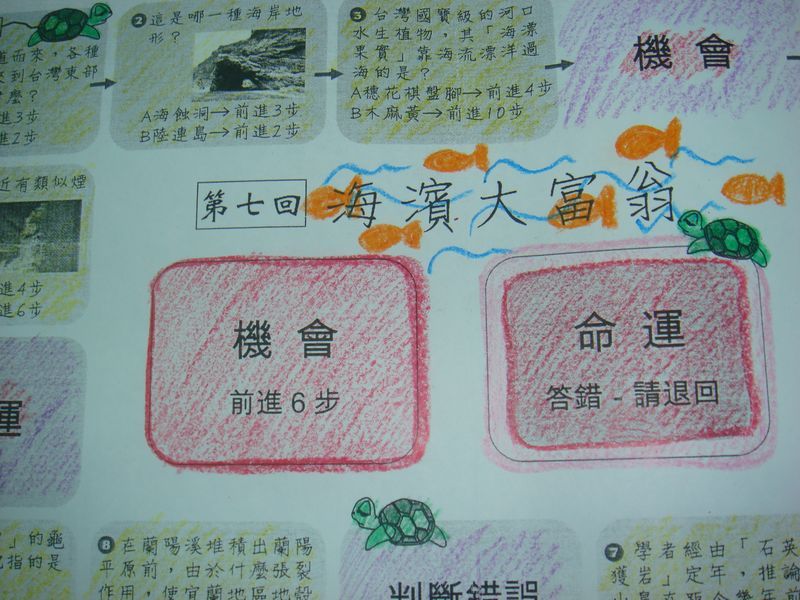 道而來，各種
來到台灣東部
麼？
進3步
進2步
❷這是哪一種海岸地
形？
A海蝕洞→前進3步
B陸連島→前進2步
❸台灣國寶級的河口
水生植物，其「海漂
果實」靠海流漂洋過
海的是？
A穗花棋盤腳→前進4步
B木麻黃→前進10步
機會
近有類似煙
進4步
進6步
第七回 海濱大富翁
機會
前進6步
命運
答錯-請退回
運
」的龜
指的是
❽在蘭陽溪堆積出蘭陽
平原前，由於什麼張裂
作用，使宜蘭地區地殼
判斷錯誤
❼學者經由「石英
獲岩」定年，推論